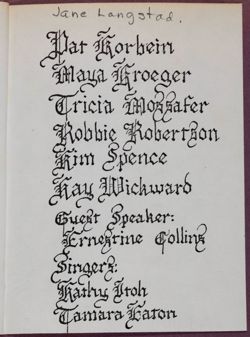 Jane Langstad.
Pat Korbein
Maya Kroeger
Tricia Mozzafer
Robbie Robertson
Kim Spence
Kay Wickward
Guest Speaker:
Ernestine Collins
Singers:
Kathy Itoh
Tamara Eaton